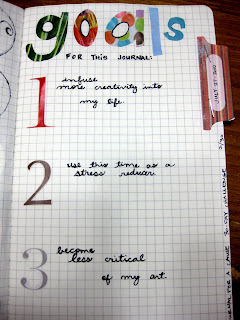 goals
FOR THIS JOURNAL:
1
infuse
more creativity into
my life.
2
use this time as a
stress reducer.
3
become
less critical
of my art.
JULY
FOR A CAUSE 30-DAY CHALLENGE